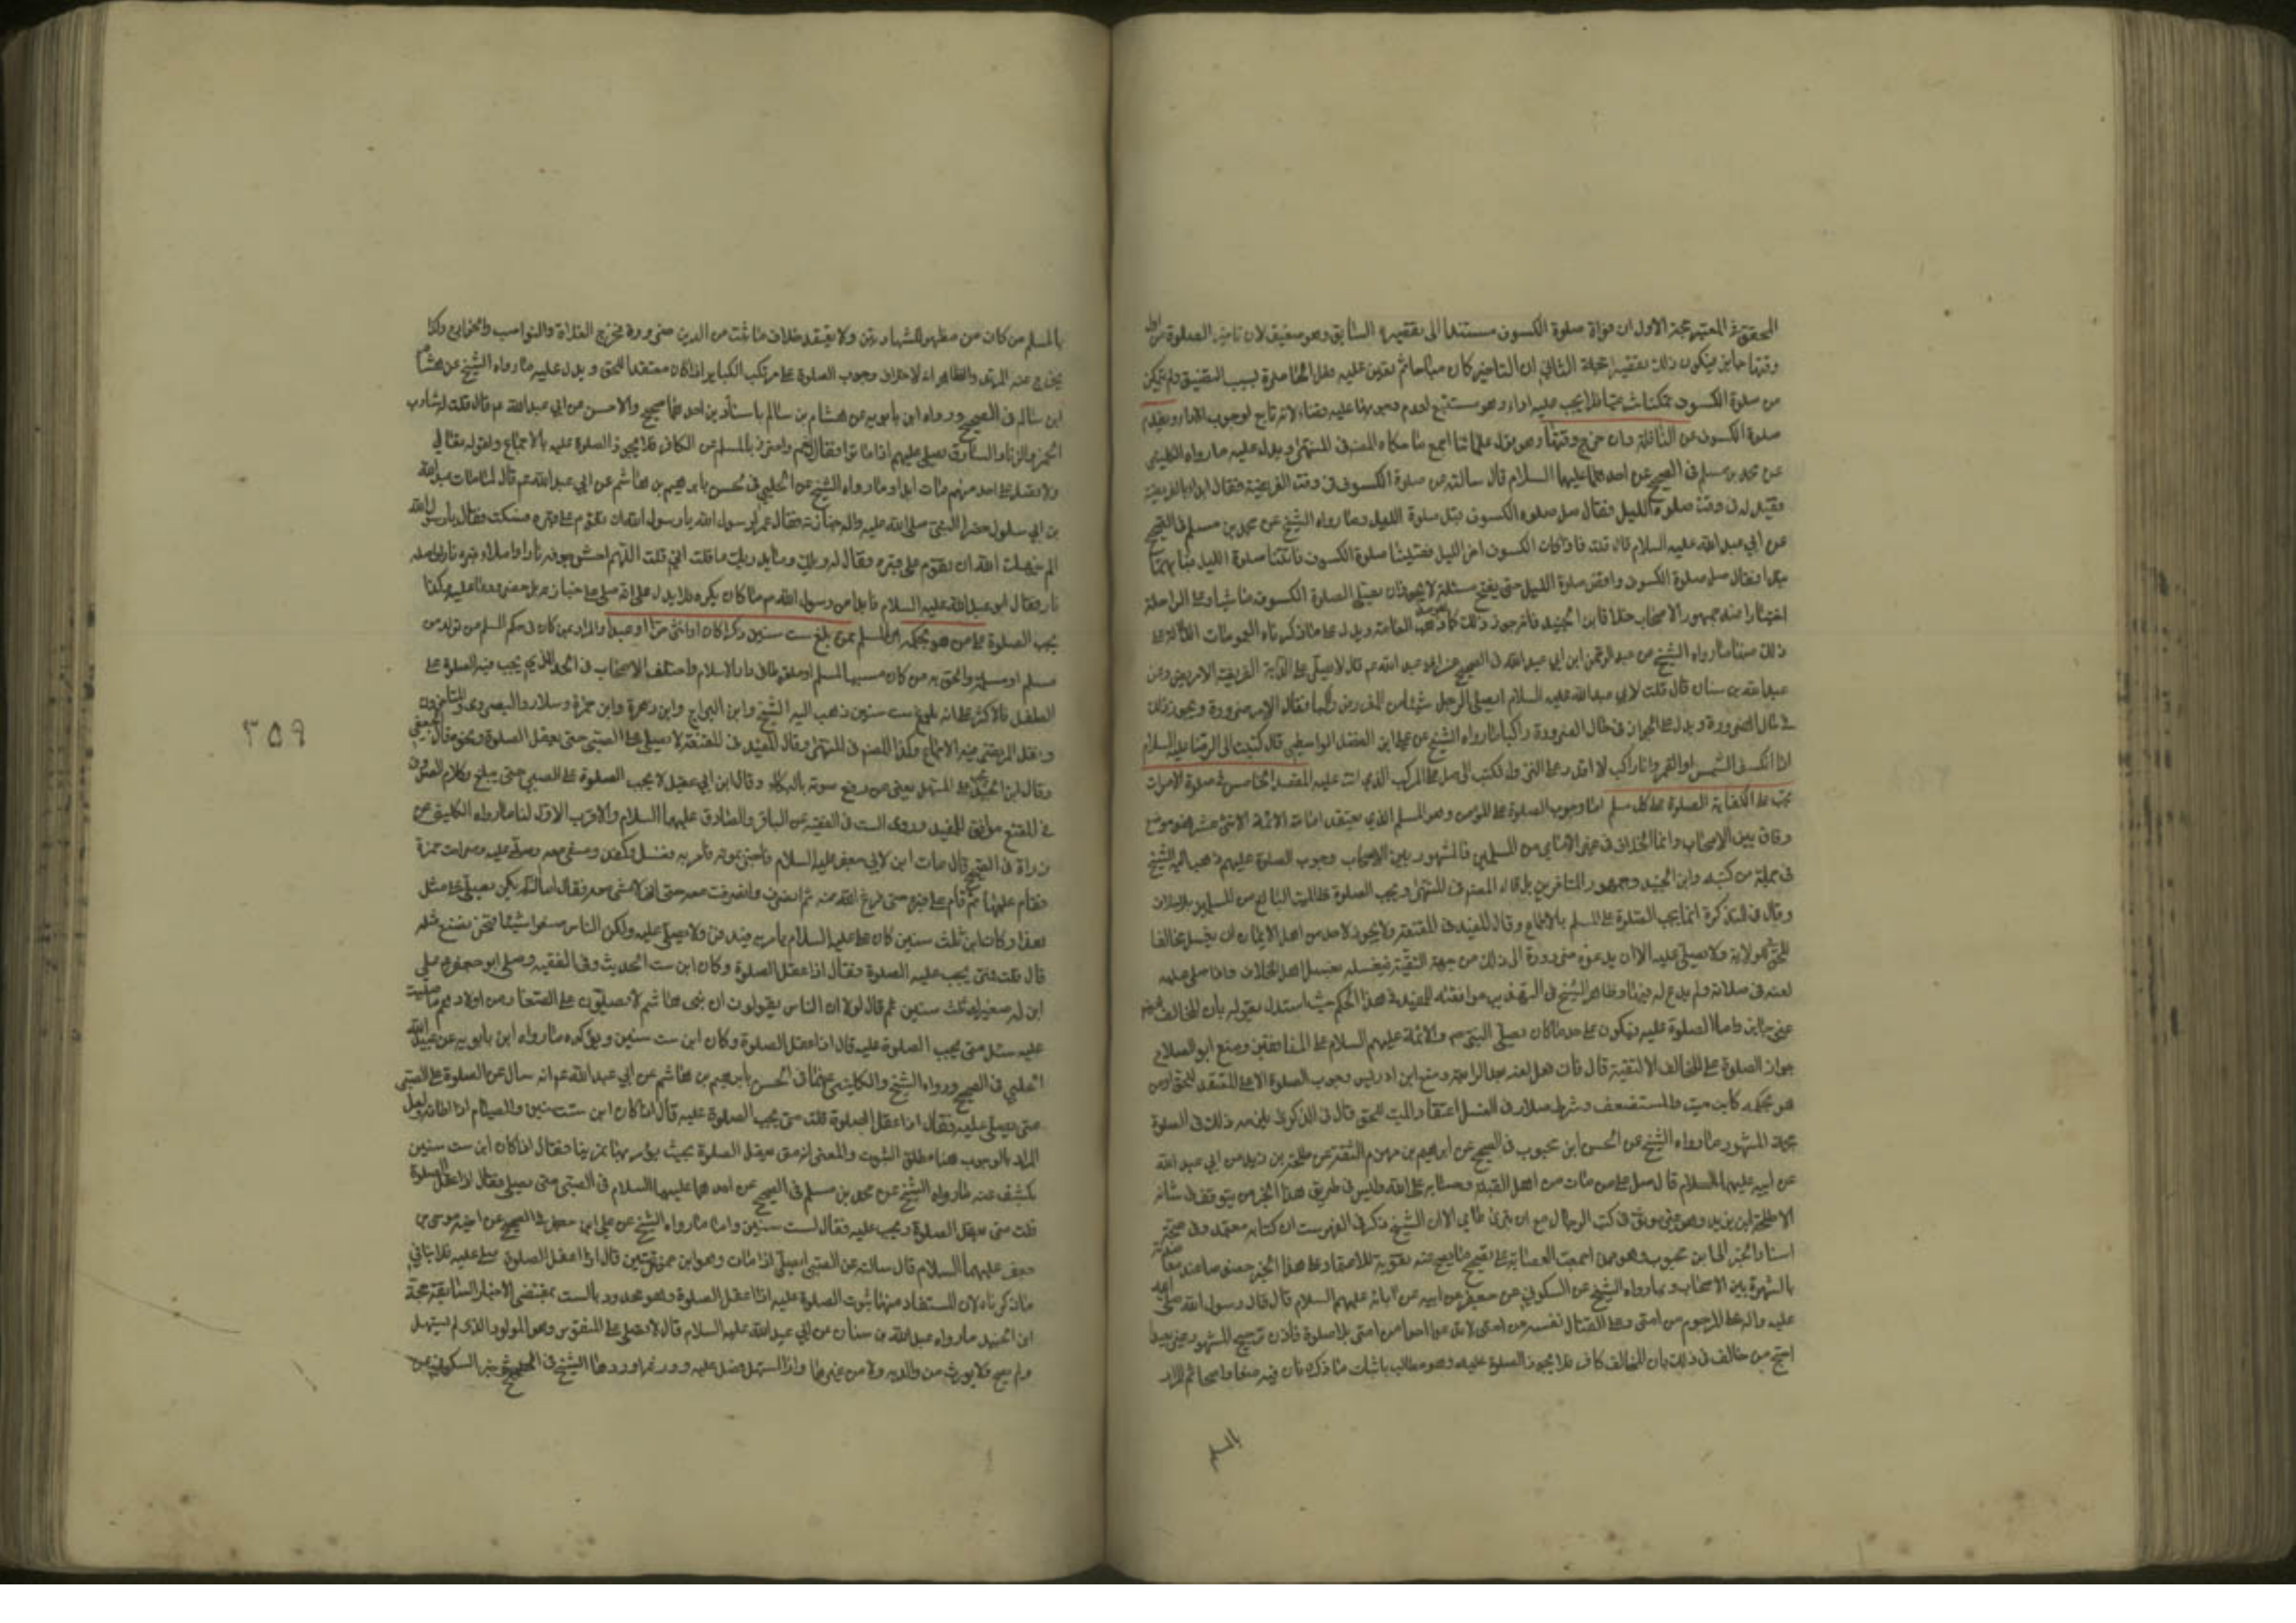 المحقق في المعتبر حجة الاول ان فواة صلوة الكسوف مستندا الى تقصيره السابق وهو ضعيف لان تاخير الصلوة من اول
وقتها جايز فيكون ذلك تقصيرا حجة الثاني ان التاخير كان مباحا ثم تعين عليه فعل الحاضرة لسبب التضيق ولم يتمكن
من صلوة الكسوف فلا يجب عليه اداء وهو مستتبع لعدم وجوبها عليه قضاء لانه تابع لوجوب الاداء ويقدم
صلوة الكسوف على النافلة وان خرج وقتها وهو قول علمائنا اجمع حكاه المصنف في المنتهى ويدل عليه ما رواه الكليني
عن محمد بن مسلم في الصحيح عن احدهما عليهما السلام قال سالته عن صلوة الكسوف في وقت الفريضة فقال ابدا بالفريضة
فقيل له في وقت صلوة الليل فقال صل صلوة الكسوف قبل صلوة الليل وما رواه الشيخ عن محمد بن مسلم في الصحيح
عن ابي عبد الله عليه السلام قال قلت فاذا كان الكسوف اخر الليل فصلينا صلوة الكسوف فاتتنا صلوة الليل فبايهما
نبدا فقال صل صلوة الكسوف واقض صلوة الليل حين تصبح ولا يجوز ان يصلى الصلوة الكسوف ماشيا وعلى الراحلة
اختيارا عند جمهور الاصحاب خلافا لابن الجنيد فانه جوز ذلك كما ذهب العامة ويدل على ما ذكرناه العمومات الدالة على
ذلك منها ما رواه الشيخ عن عبد الرحمن ابن ابي عبد الله في الصحيح عن ابي عبد الله ع قال لا يصلي على الدابة الفريضة الا مريض وعن
عبد الله بن سنان قال قلت لابي عبد الله عليه السلام ايصلي الرجل شيئا من المفروض راكبا فقال لا الا من ضرورة ويجوز ذلك
في حال الضرورة ويدل على الجواز في حال الضرورة راكبا ما رواه الشيخ عن علي ابن الفضل الواسطي قال كتبت الى الرضا عليه السلام
اذا انكسف الشمس او القمر وانا راكب لا اقدر على النزول فكتب الي صل على المركب الذي انت عليه المقصد الخامس في صلوة الاموات
تجب على الكفاية الصلوة على كل مسلم اما وجوب الصلوة على المؤمن وهو المسلم الذي يعتقد امامة الائمة الاثنى عشر فهو موضع
وفاق بين الاصحاب وانما الخلاف في غير الامامي من المسلمين فالمشهور بين الاصحاب وجوب الصلوة عليهم ذهب اليه الشيخ
في جملة من كتبه وابن الجنيد وجمهور المتاخرين بل قال المصنف في المنتهى ويجب الصلوة على الميت البالغ من المسلمين بلا خلاف
وقال في التذكرة انما يجب الصلوة على المسلم بالاجماع وقال المفيد في المقنعة ولا يجوز لاحد من اهل الايمان ان يغسل مخالفا
للحق في الولاية ولا يصلي عليه الا ان يدعوه ضرورة الى ذلك من جهة التقية فيغسله تغسيل اهل الخلاف واذا صلى عليه
لعنه في صلاته ولم يدع له فيها وظاهر الشيخ في التهذيب موافقته للمفيد في هذا الحكم حيث استدل بقوله بان المخالف
غير جايز واما الصلوة عليه فيكون على حد ما كان يصلي النبي ص والائمة عليهم السلام على المنافقين ومنع ابو الصلاح
جواز الصلوة على المخالف الا لتقية قال فان فعل لعنه بعد الرابعة ومنع ابن ادريس وجوب الصلوة الا على المعتقد للحق ومن
هو بحكمه كابن ست والمستضعف وشرط سلار في الغسل اعتقاد الميت للحق قال في الذكرى ويلزمه ذلك في الصلوة
حجة المشهور ما رواه الشيخ عن الحسن ابن محبوب في الصحيح عن ابراهيم بن مهزم الثقة عن طلحة بن زيد عن ابي عبد الله
عن ابيه عليهما السلام قال صل على من مات من اهل القبلة وحسابه على الله وليس في طريق هذا الخبر من يتوقف في شانه
الا طلحة ابن زيد وهو غير موثق في كتب الرجال مع انه بتري عامي الا ان الشيخ ذكر في الفهرست ان كتابه معتمد وفي صحة
اسناد الخبر الى ابن محبوب وهو ممن اجمعت العصابة على تصحيح ما يصح عنه تقوية للاعتماد على هذا الخبر
بالشهرة بين الاصحاب وبما رواه الشيخ عن السكوني عن جعفر عن ابيه عن ابائه عليهم السلام قال قال رسول الله صلى الله
عليه واله صلوا على المرجوم من امتي وعلى القتال نفسه من امتي لا تدعوا احدا من امتي بلا صلوة
احتج من خالف في ذلك بان المخالف كافر فلا يجوز الصلوة عليه وهو مطالب باثبات ما ذكره فان فيه ثم المراد
بالمسلم
بالمسلم من كان من مظهر للشهادتين ولا يعتقد خلاف ما ثبت من الدين ضرورة فخرج الغلاة والنواصب والخوارج وكذا
يخرج عنه المرتد والظاهر انه لا خلاف وجوب الصلوة على مرتكب الكبائر اذا كان معتقدا للحق ويدل عليه ما رواه الشيخ عن هشام
ابن سالم في الصحيح ورواه ابن بابويه عن هشام بن سالم باسنادين احدهما صحيح والاخر حسن عن ابي عبد الله ع قال قلت له شارب
الخمر والزنا والسارق يصلى عليهم اذا ماتوا فقال نعم واحترز بالمسلم عن الكافر فلا يجوز الصلوة عليه بالاجماع ولقوله تعالى
ولا تصل على احد منهم مات ابدا وما رواه الشيخ عن الحلبي في الحسن بابرهيم بن هاشم عن ابي عبد الله ع قال لما مات عبد الله
بن ابي سلول حضر النبي صلى الله عليه واله جنازته فقال عمر لرسول الله يا رسول الله الم ينهك الله ان تقوم على قبره فسكت فقال يا رسول الله
الم ينهك الله ان تقوم على قبره فقال له ويلك وما يدريك ما قلت اني قلت اللهم احش جوفه نارا واملا قبره نارا واصله
نارا فقال ابو عبد الله عليه السلام فابدا من رسول الله ص ما كان يكره فلا يدل على انه صلى على جنازته بل حضر ودعا عليه وكذا
يجب الصلوة على من هو بحكمه اي المسلم ممن بلغ ست سنين ذكرا كان او انثى حرا او عبدا والمراد بمن كان في حكم المسلم من تولد من
مسلم او مسلمة والحق به من كان مسبيا لمسلم او ملقوطا في دار الاسلام واختلف الاصحاب في الحد الذي يجب فيه الصلوة على
الطفل فالاكثر على انه بلوغ ست سنين ذهب اليه الشيخ وابن البراج وابن زهرة وابن حمزة وسلار والبصروي والمتاخرون
ونقل المرتضى فيه الاجماع وكذا المصنف في المنتهى وقال المفيد في المقنعة لا يصلى على الصبي حتى يعقل الصلوة ونحوه قال الجعفي
وقال ابن الجنيد تجب على المستهل يعني من رفع صوته بالبكاء وقال ابن ابي عقيل لا يجب الصلوة على الصبي حتى يبلغ وكلام الصدوق
في المقنع موافق للمفيد وروى الست في الفقيه عن الباقر والصادق عليهما السلام والاقرب الاول لنا ما رواه الكليني عن
زرارة في الصحيح قال مات ابن لابي جعفر عليه السلام فاخبر بموته فامر به فغسل وكفن ومشى معه وصلى عليه وطرحت خمرة
فقام عليها ثم قام على قبره حتى فرغ منه ثم انصرف وانصرفت معه حتى اني لامشي معه فقال اما انه لم يكن يصلى على مثل
هذا وكان ابن ثلث سنين كان علي عليه السلام يامر به فيدفن ولا يصلى عليه ولكن الناس صنعوا شيئا فنحن نصنع مثله
قال قلت فمتى يجب عليه الصلوة فقال اذا عقل الصلوة وكان ابن ست الحديث وفي الفقيه وصلى ابو جعفر ع على
ابن له صغير له ثلث سنين ثم قال لولا ان الناس يقولون ان بني هاشم لا يصلون على الصغار من اولادهم ما صليت
عليه وسئل متى يجب الصلوة عليه قال اذا عقل الصلوة وكان ابن ست سنين ويؤكده ما رواه ابن بابويه عن عبيد الله
الحلبي في الصحيح ورواه الشيخ والكليني عنه في الحسن بابرهيم بن هاشم عن ابي عبد الله ع انه سال عن الصلوة على الصبي
متى يصلى عليه فقال اذا عقل الصلوة قلت متى يجب الصلوة عليه قال اذا كان ابن ست سنين والصيام اذا اطاقه ولعل
المراد بالوجوب هنا مطلق الثبوت والمعنى انه متى يعقل الصلوة بحيث يؤمر بها تمرينا فقال اذا كان ابن ست سنين
يكشف عنه ما رواه الشيخ عن محمد بن مسلم في الصحيح عن احدهما عليهما السلام في الصبي متى يصلي فقال اذا عقل الصلوة
قلت متى يعقل الصلوة ويجب عليه فقال لست سنين واما ما رواه الشيخ عن علي ابن جعفر في الصحيح عن اخيه موسى بن
جعفر عليهما السلام قال سالته عن الصبي ايصلى اذا مات وهو ابن خمس سنين قال اذا عقل الصلوة صلي عليه فلا ينافي
ما ذكرناه لان المستفاد منها ثبوت الصلوة عليه اذا عقل الصلوة وهو محدود بالست بمقتضى الاخبار السابقة حجة
ابن الجنيد ما رواه عبد الله بن سنان عن ابي عبد الله عليه السلام قال لا يصلى على المنفوس وهو المولود الذي لم يستهل
ولم يصح ولا يورث من والديه ولا من غيرها واذا استهل فصل عليه وورثه واوردها الشيخ في الصحيح عن السكوني عن
٣٥٩